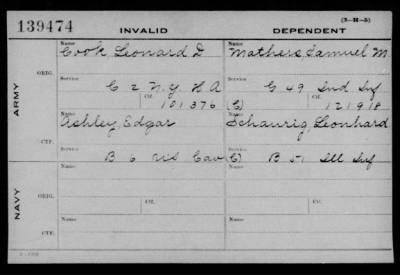 (3-M-5)
139474 INVALID DEPENDENT
Name Name
Cook, Leonard D Mathers, Samuel M.
ARMY
ORIG.
Service Service
G 2 N.Y. H A G 49 Ind Inf
Ctf. Ctf.
101376 (C) 121918
Name Name
Ashley, Edgar Schaurig, Leonhard
CTF.
Service Service
B 6 U S Cav (C) B 51 Ill Inf
NAVY
Name Name
ORIG.
Service Ctf. Service Ctf.
Name Name
CTF.
Service Service